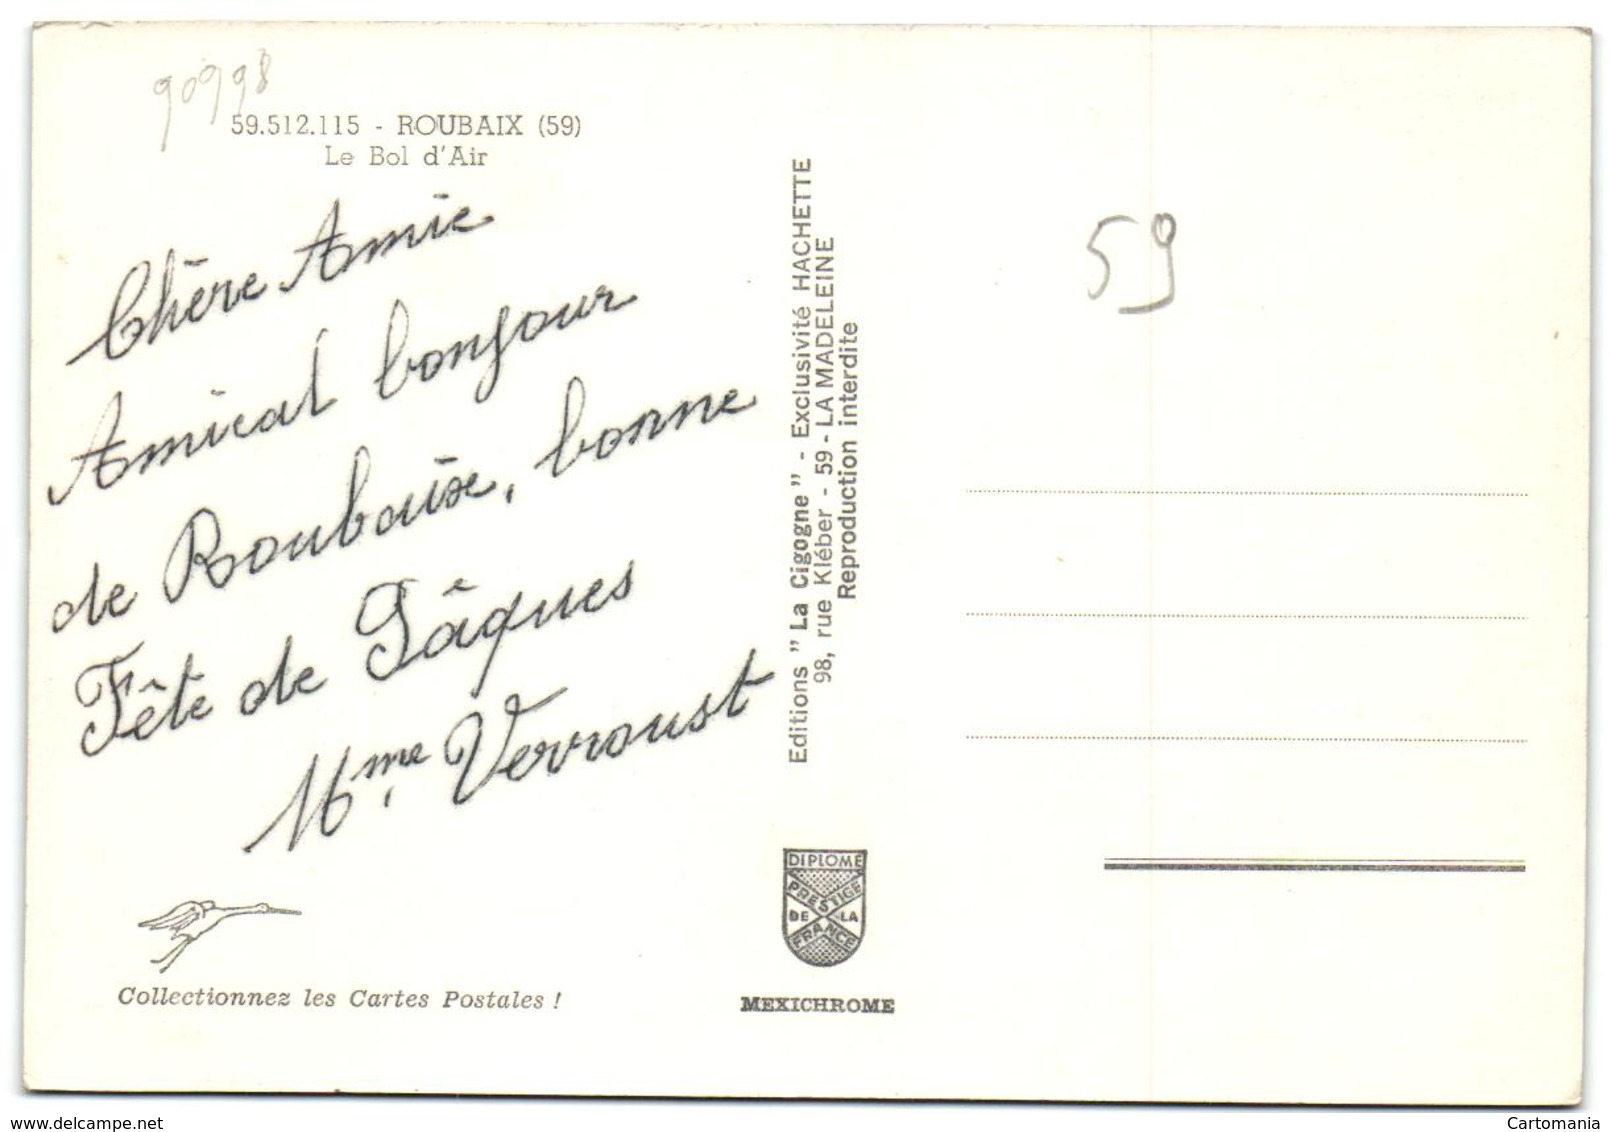 90998
59.512.115 - ROUBAIX (59)
Le Bol d'Air
Chère Amie
Amical bonjour
de Roubaix, bonne
Fête de Pâques
Mme. Verroust
Collectionnez les Cartes Postales !
Editions " La Cigogne " - Exclusivité HACHETTE
98, rue Kléber - 59 - LA MADELEINE
Reproduction interdite
DIPLOME
PRESTIGE
DE LA
FRANCE
MEXICHROME
59
www.delcampe.net
Cartomania